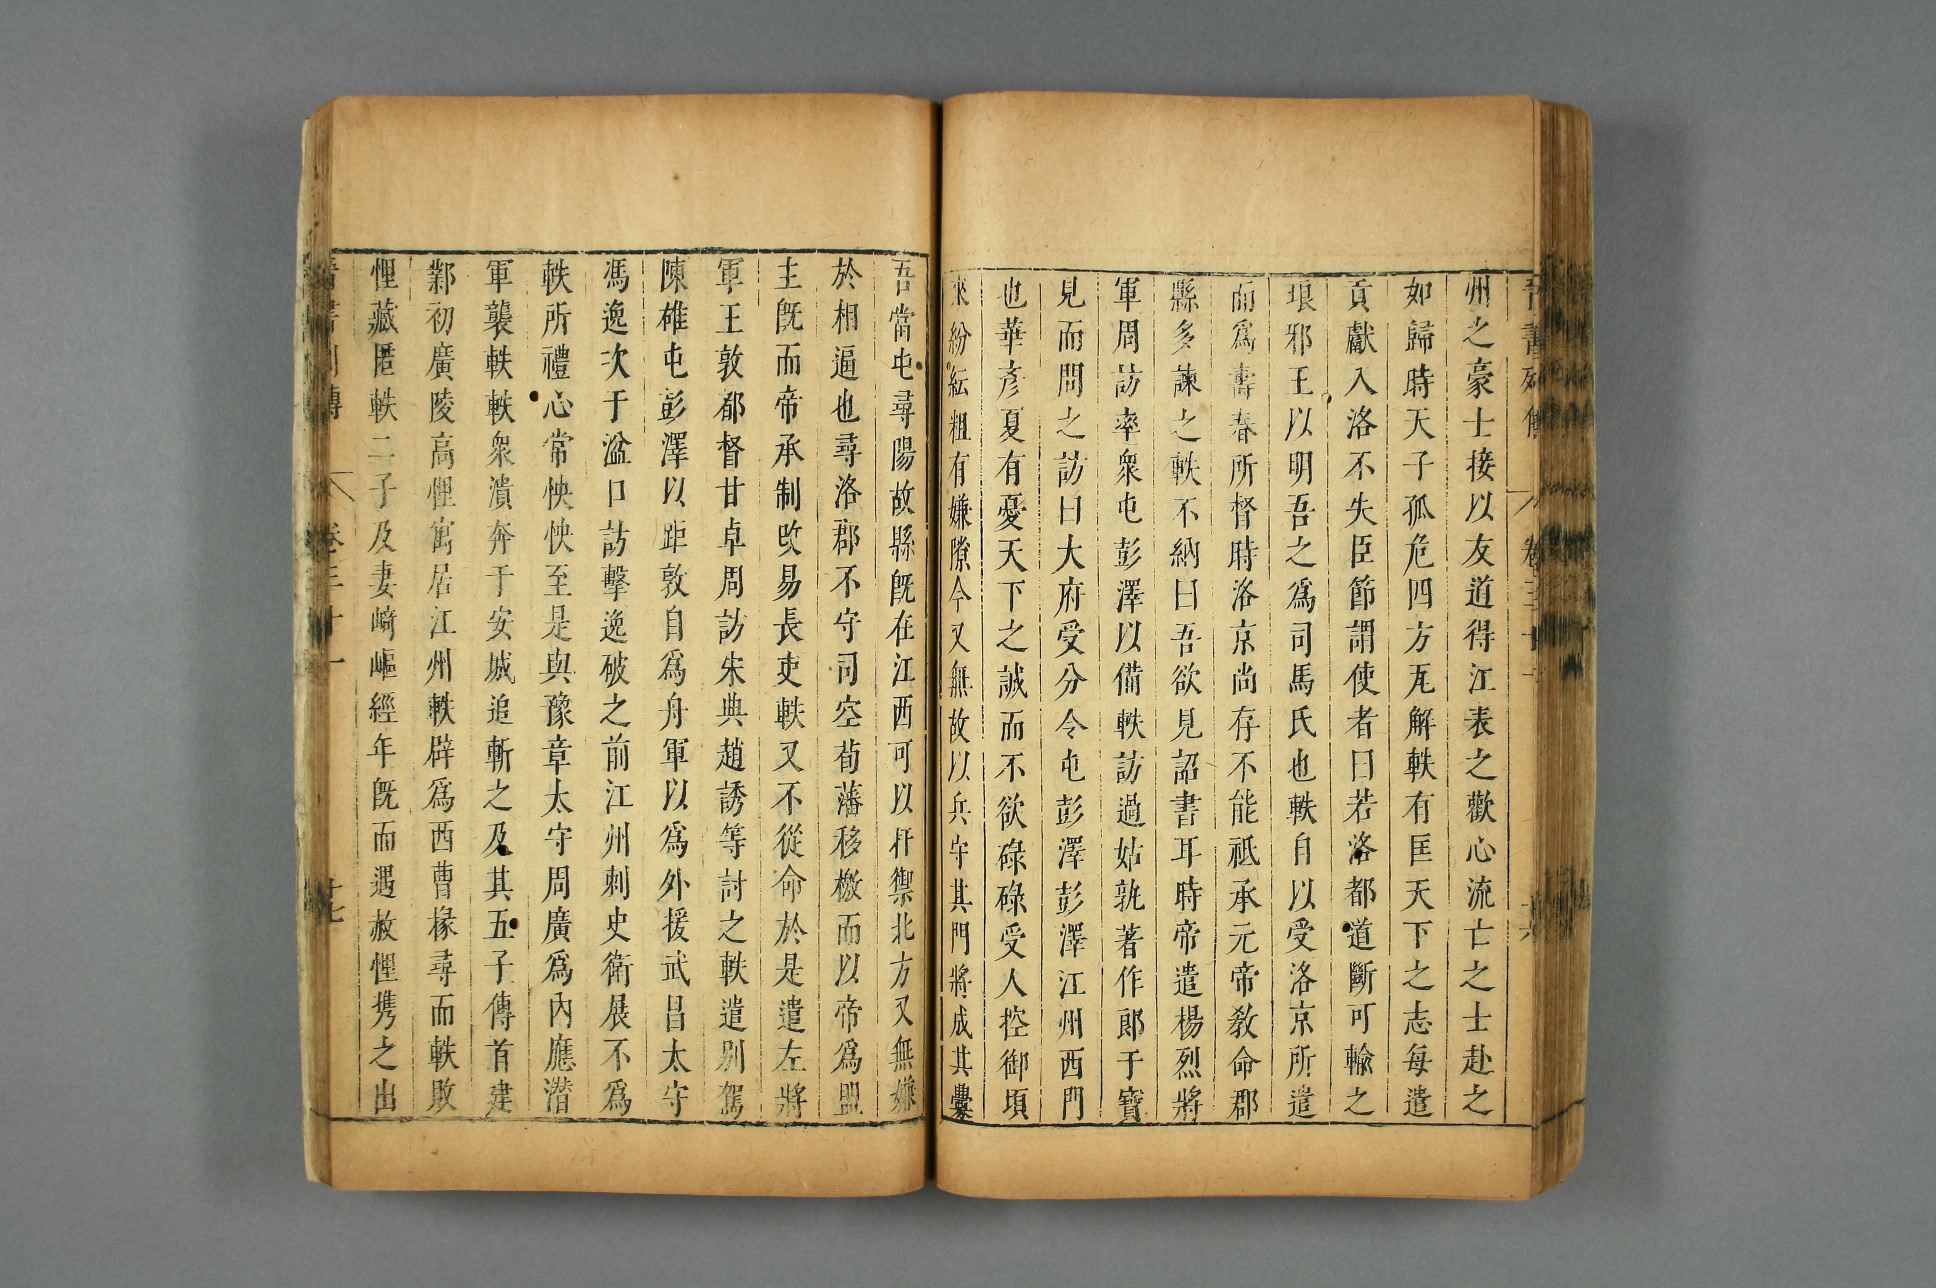 晉書列傳 卷三十一 十六
州之豪士接以友道得江表之歡心流亡之士赴之
如歸時天子孤危四方瓦解軼有匡天下之志每遣
貢獻入洛不失臣節謂使者曰若洛都道斷可輸之
琅邪王以明吾之爲司馬氏也軼自以受洛京所遣
而爲壽春所督時洛京尚存不能祗承元帝教命郡
縣多諫之軼不納曰吾欲見詔書耳時帝遣楊烈將
軍周訪率衆屯彭澤以備軼訪過姑孰著作郎于寶
見而問之訪曰大府受分令屯彭澤彭澤江州西門
也華彥夏有憂天下之誠而不欲碌碌受人控御頃
來紛紜粗有嫌隙今又無故以兵守其門將成其釁
吾當屯尋陽故縣旣在江西可以扞禦北方又無嫌
於相逼也尋洛郡不守司空荀藩移檄而以帝爲盟
主旣而帝承制改易長吏軼又不從命於是遣左將
軍王敦都督甘卓周訪朱典趙誘等討之軼遣別駕
陳雄屯彭澤以距敦自爲舟軍以爲外援武昌太守
馮逸次于湓口訪擊逸破之前江州刺史衛展不爲
軼所禮心常怏怏至是與豫章太守周廣爲內應潛
軍襲軼軼衆潰奔于安城追斬之及其五子傳首建
鄴初廣陵高悝寓居江州軼辟爲西曹掾尋而軼敗
悝藏匿軼二子及妻崎嶇經年旣而遇赦悝携之出
晉書列傳 卷三十一 十七